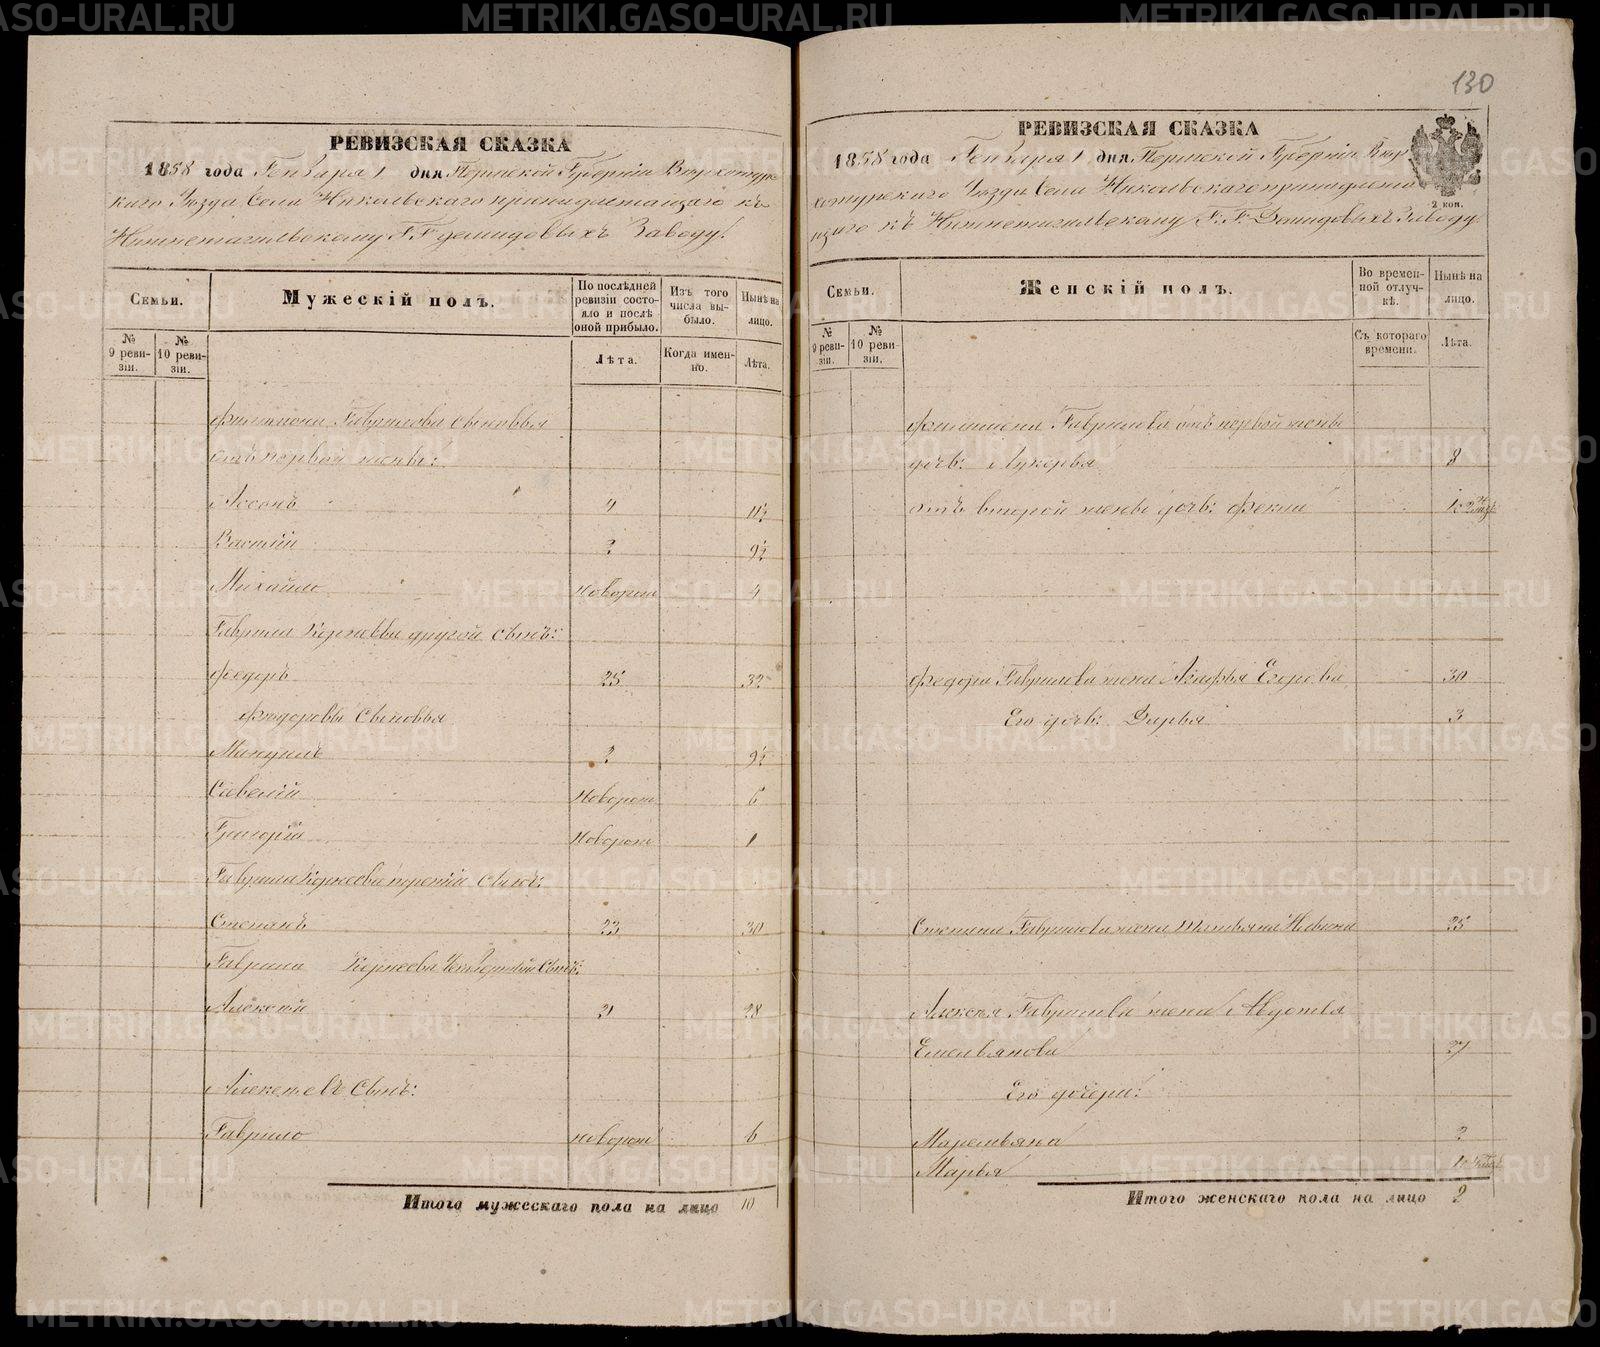 130
РЕВИЗСКАЯ СКАЗКА
1858 года Генваря 1 дня Пермской Губерніи Верхотурс-
каго Уѣзда Села Никольскаго принадлежащаго къ
Нижнетагильскому Г.Г. Демидовыхъ Заводу.
Семьи.
Мужескій полъ.
По послѣдней ревизіи состояло и послѣ оной прибыло.
Изъ того числа выбыло.
Нынѣ на лицо.
№ 9 ревизіи.
№ 10 ревизіи.
Лѣта.
Когда именно.
Лѣта.
Филимона Гаврилова Сыновья
отъ первой жены:
Ассонъ 4 11½
Василій 2 9½
Михайло новорож 4
Гаврила Корнеева другой сынъ:
Федоръ 25 32
Федоровы Сыновья
Мануилъ 2 9½
Савелій новорож 6
Григорій новорож 1
Гаврила Корнеева третій Сынъ:
Степанъ 23 30
Гаврила Корнеева Четвертый Сынъ:
Алексѣй 21 28
Алексѣевъ Сынъ:
Гаврило новорож 6
Итого мужескаго пола на лицо 10
РЕВИЗСКАЯ СКАЗКА
1858 года Генваря 1 дня Пермской Губерніи Верхотурскаго Уѣзда Села Никольскаго принадлежащаго къ Нижнетагильскому Г.Г. Демидовыхъ Заводу
2 коп.
Семьи.
Женскій полъ.
Во временной отлучкѣ.
Нынѣ на лицо.
№ 9 ревизіи.
№ 10 ревизіи.
Съ котораго времени.
Лѣта.
Филимона Гаврилова отъ первой жены
дочь: Лукерья 8
отъ второй жены дочь: Фекла
Федора Гаврилова жена Агафья Егорова 30
Его дочь: Дарья 3
Степана Гаврилова жена Татьяна 25
Алексѣя Гаврилова жена Авдотья
Емельянова 27
Его дочери:
Маремьяна 2
Марья
Итого женскаго пола на лицо 9
METRIKI.GASO-URAL.RU